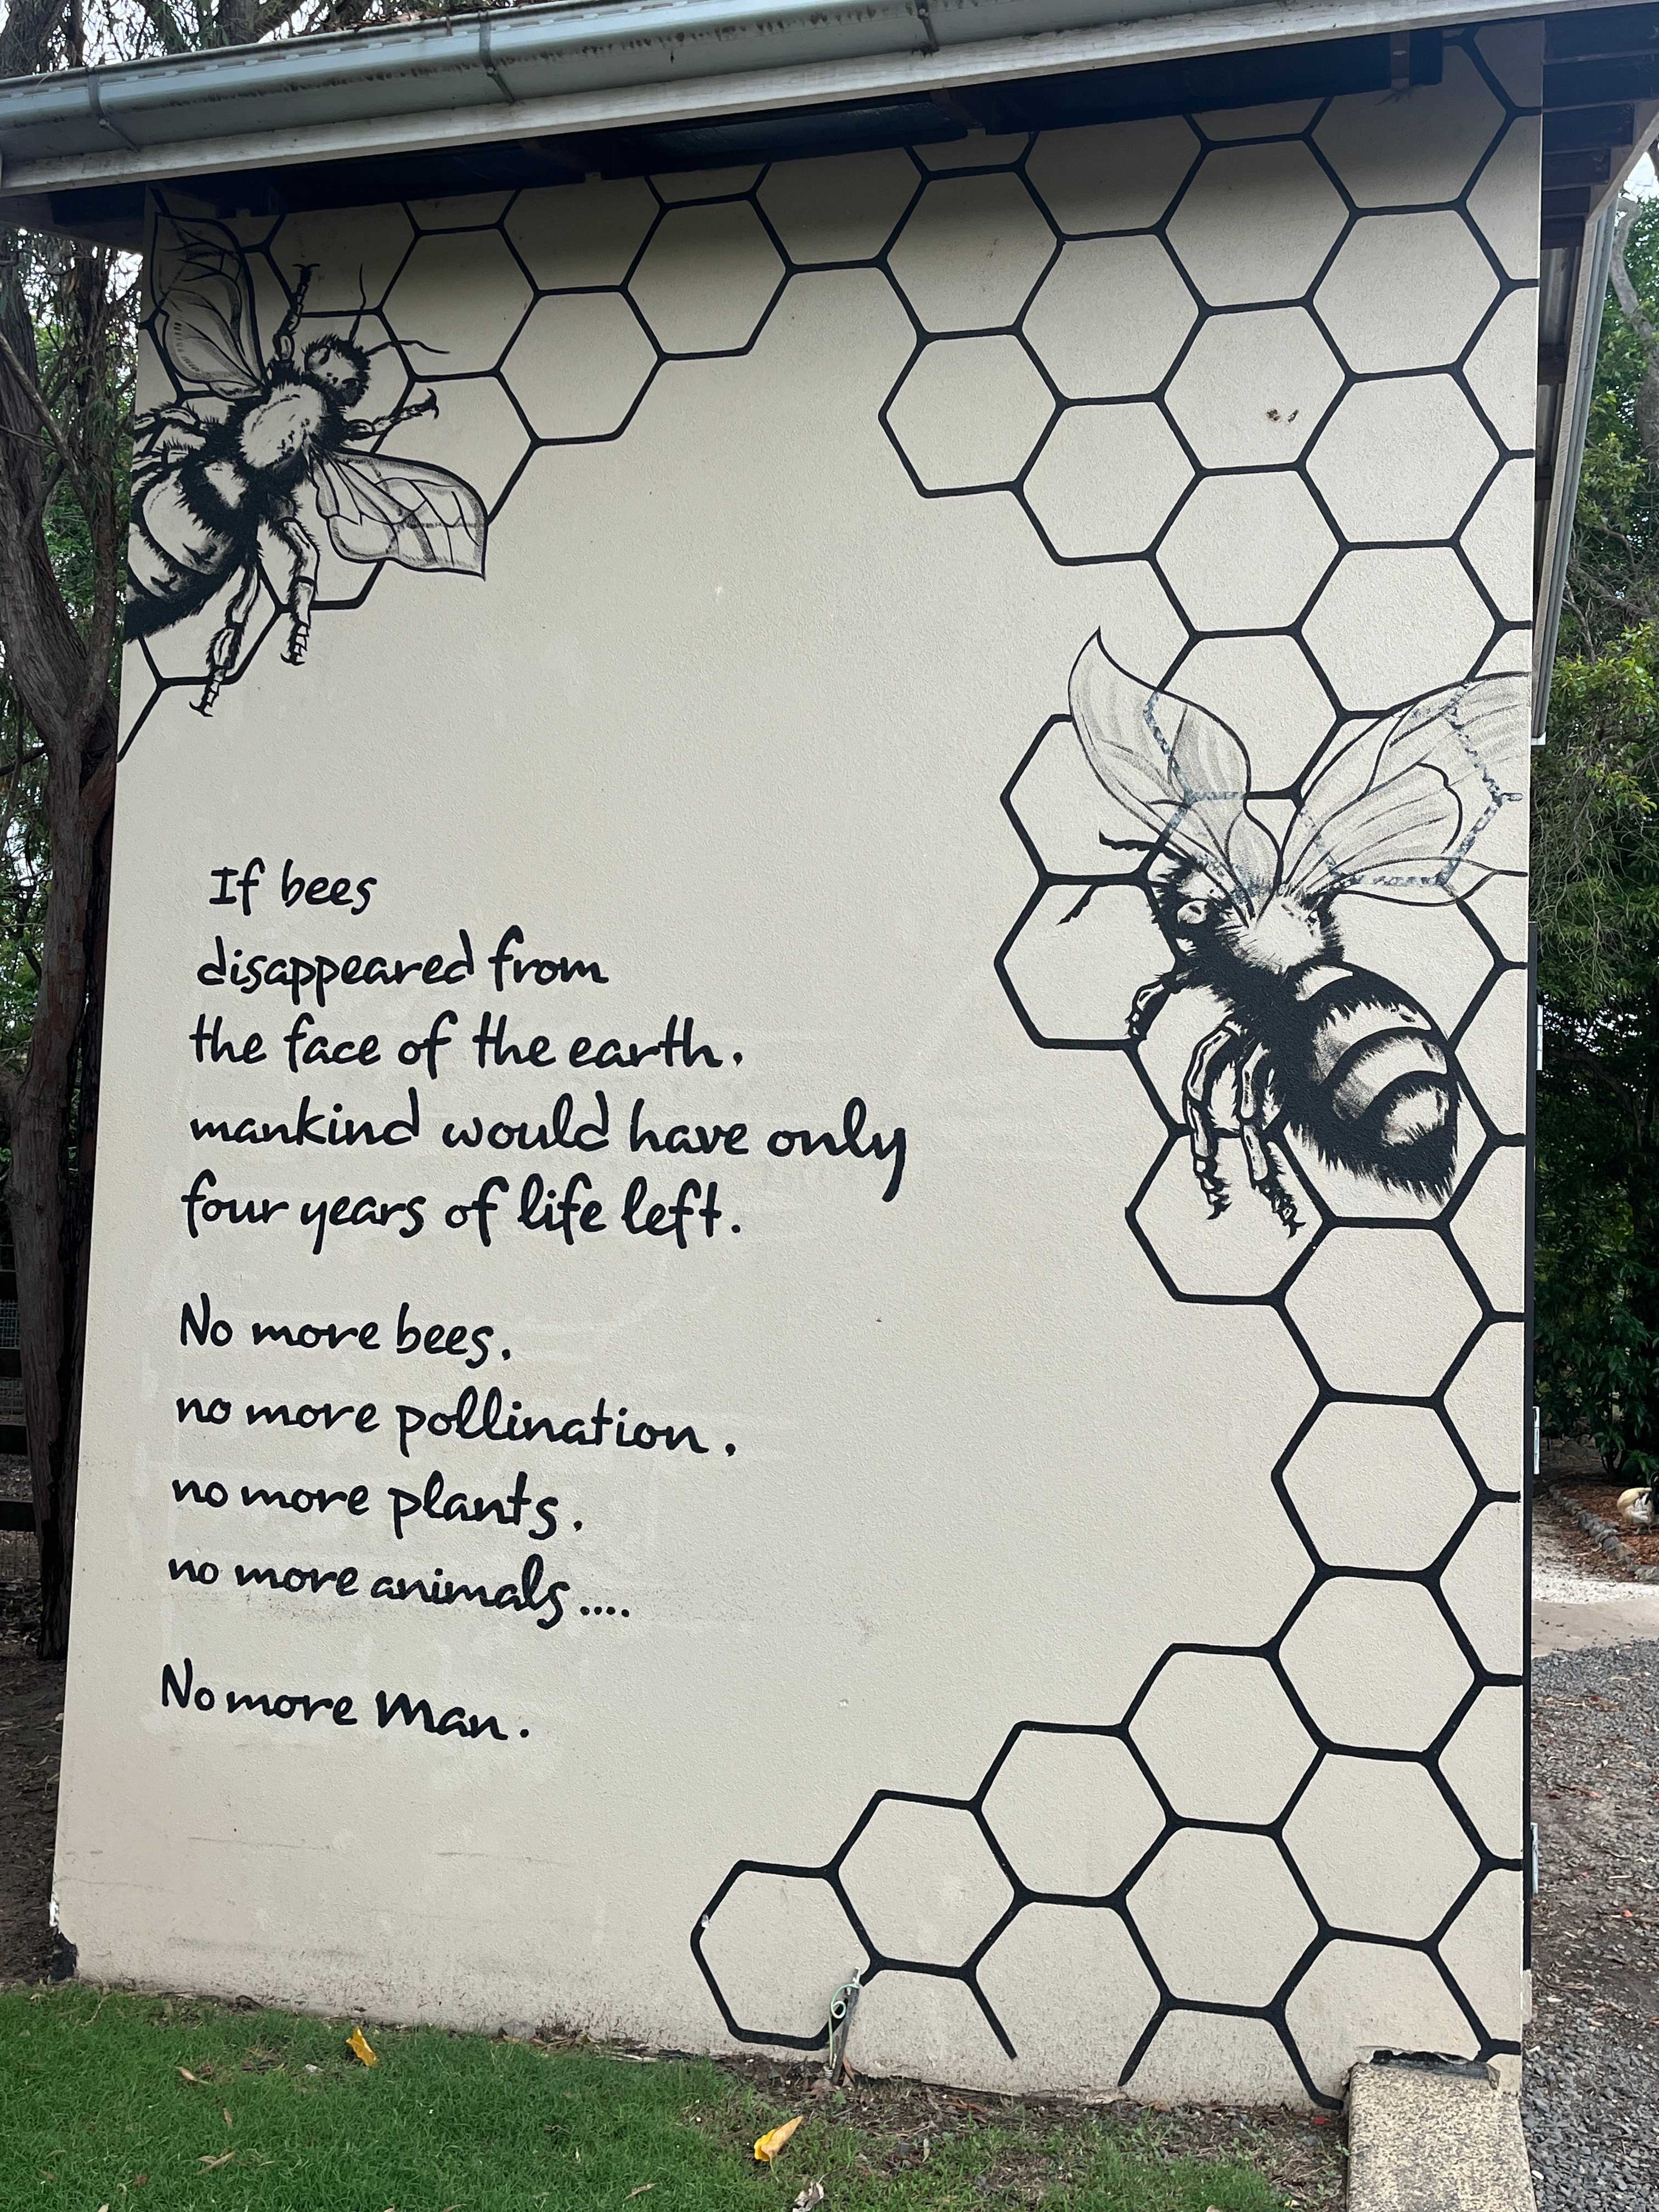 If bees
disappeared from
the face of the earth.
mankind would have only
four years of life left.
No more bees.
no more pollination.
no more plants.
no more animals....
No more Man.